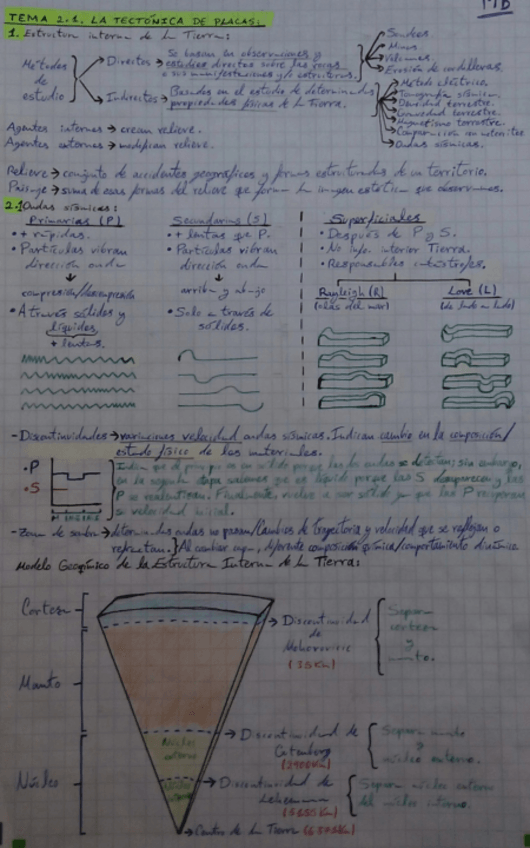 TEMA 2.1. LA TECTÓNICA DE PLACAS:
1. Estructura interna de la Tierra:
Métodos de estudio
Directos → Se basan en observaciones y
estudios directos sobre las rocas
o sus manifestaciones y/o estructuras.
Sondeos
Minas
Volcanes
Erosión de cordilleras.
Indirectos → Basados en el estudio de determinadas
propiedades físicas de la Tierra.
Método eléctrico.
Tomografía sísmica.
Densidad terrestre.
Gravedad terrestre.
Magnetismo terrestre.
Comparación con meteoritos
Ondas sísmicas.
Agentes internos → crean relieve.
Agentes externos → modifican relieve.
Relieve → conjunto de accidentes geográficos y formas estructurales de un territorio.
Paisaje → suma de esas formas del relieve que forman la imagen estética que observamos.
2.1 Ondas sísmicas:
Primarias (P)
• + rápidas.
• Partículas vibran
dirección onda
↓
compresión/descompresión
• A través sólidos y
líquidos
+ lentas.
Secundarias (S)
• + lentas que P.
• Partículas vibran
dirección onda
↓
arriba y abajo
• Solo a través de
sólidos.
Superficiales
• Después de P y S.
• No info. interior Tierra.
• Responsables catástrofes.
Rayleigh (R)
(olas del mar)
Love (L)
(de lado a lado)
- Discontinuidades → variaciones velocidad ondas sísmicas. Indican cambio en la composición/
estado físico de los materiales.
• P
• S
en la segunda capa sabemos que es líquido porque las S desaparecen y las
P se ralentizan. Finalmente vuelve a ser sólido ya que las P recuperan
su velocidad inicial.
- Zona de sombra → determinadas ondas no pasan/Cambios de trayectoria y velocidad que se reflejan o
refractan. } Al cambiar capa, diferente composición química/comportamiento dinámico
Modelo Geoquímico de la Estructura Interna de la Tierra:
Corteza
Manto
Núcleo
Núcleo
externo
Núcleo
→ Discontinuidad
de
Mohorovicic
Separa
corteza
y
manto.
→ Discontinuidad de
Gutenberg
(2900Km)
Separa manto
y
núcleo externo.
→ Discontinuidad de
Lehemann
Separa núcleo externo
del núcleo interno.
→ Centro de la Tierra